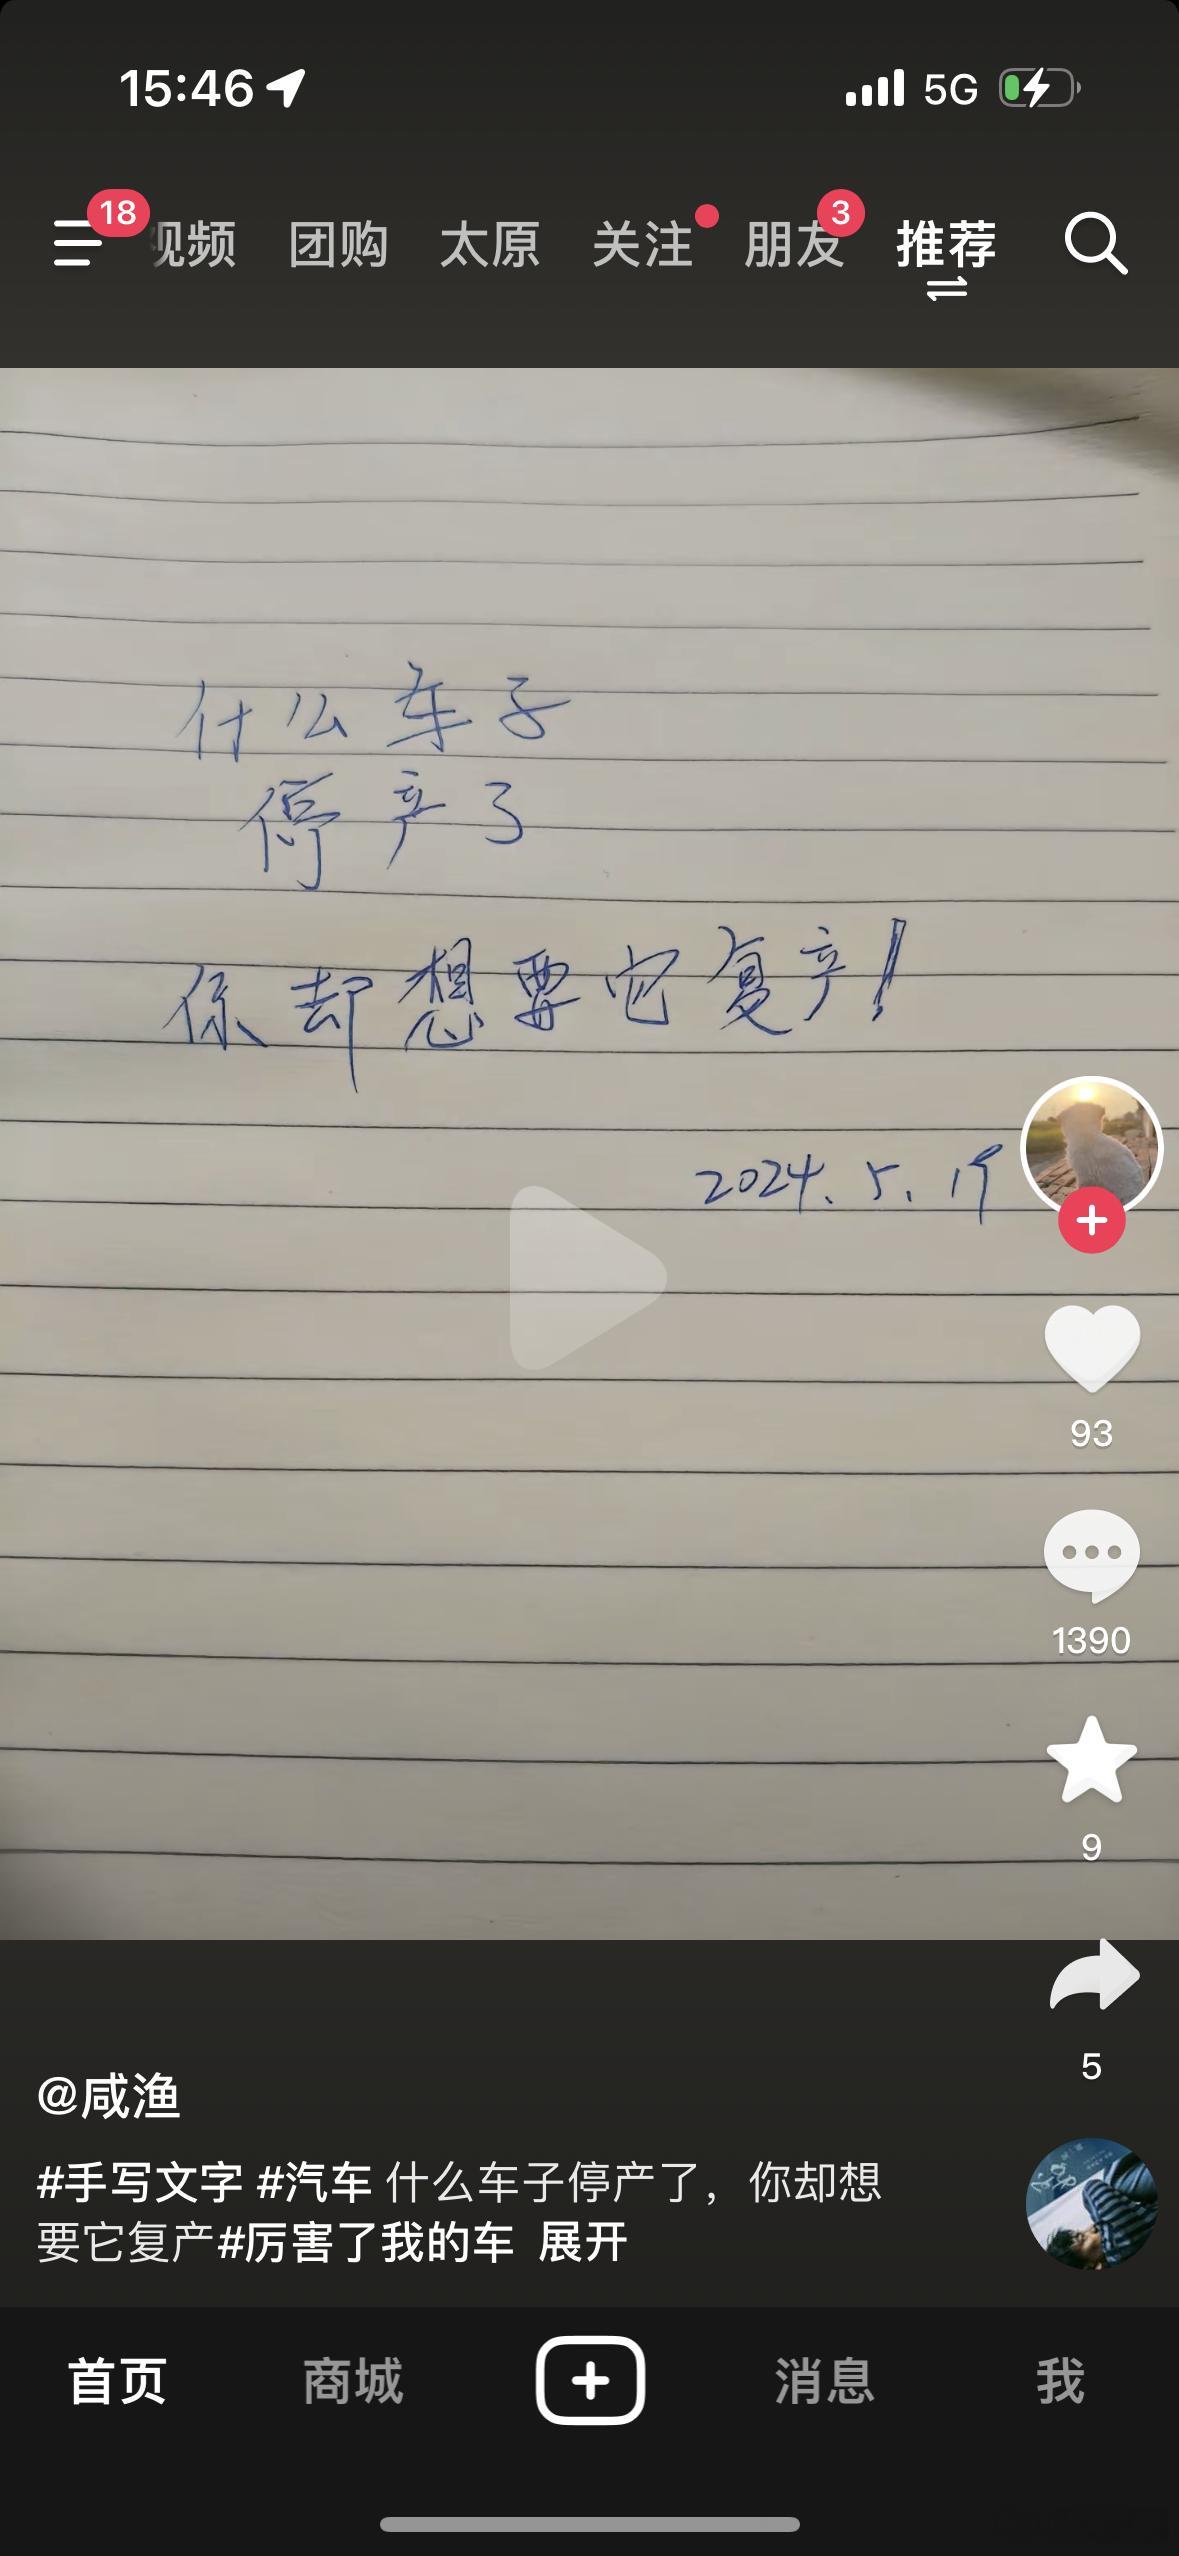 15:46 5G
18 视频 团购 太原 关注 朋友 3 推荐
什么车子
停产了
你却想要它复产!
2024.5.19
93
1390
9
5
@咸渔
#手写文字 #汽车 什么车子停产了，你却想
要它复产#厉害了我的车 展开
首页 商城 消息 我